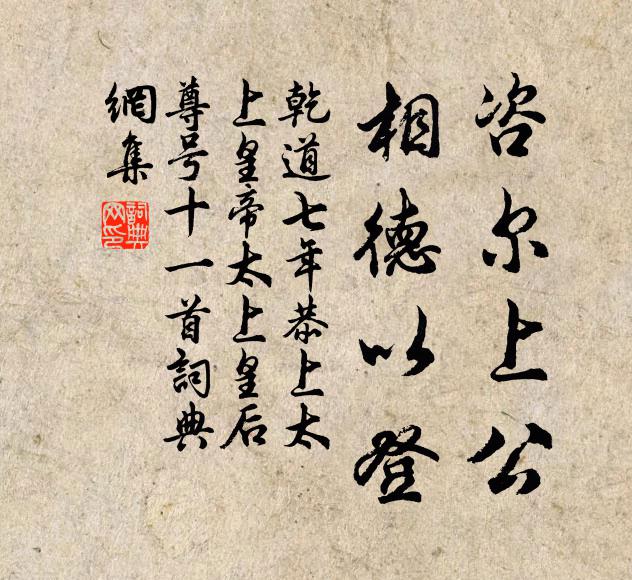 咨尔上公
相德以登
乾道七年恭上太
上皇帝太上皇后
尊号十一首詞典
網集
詞典网印